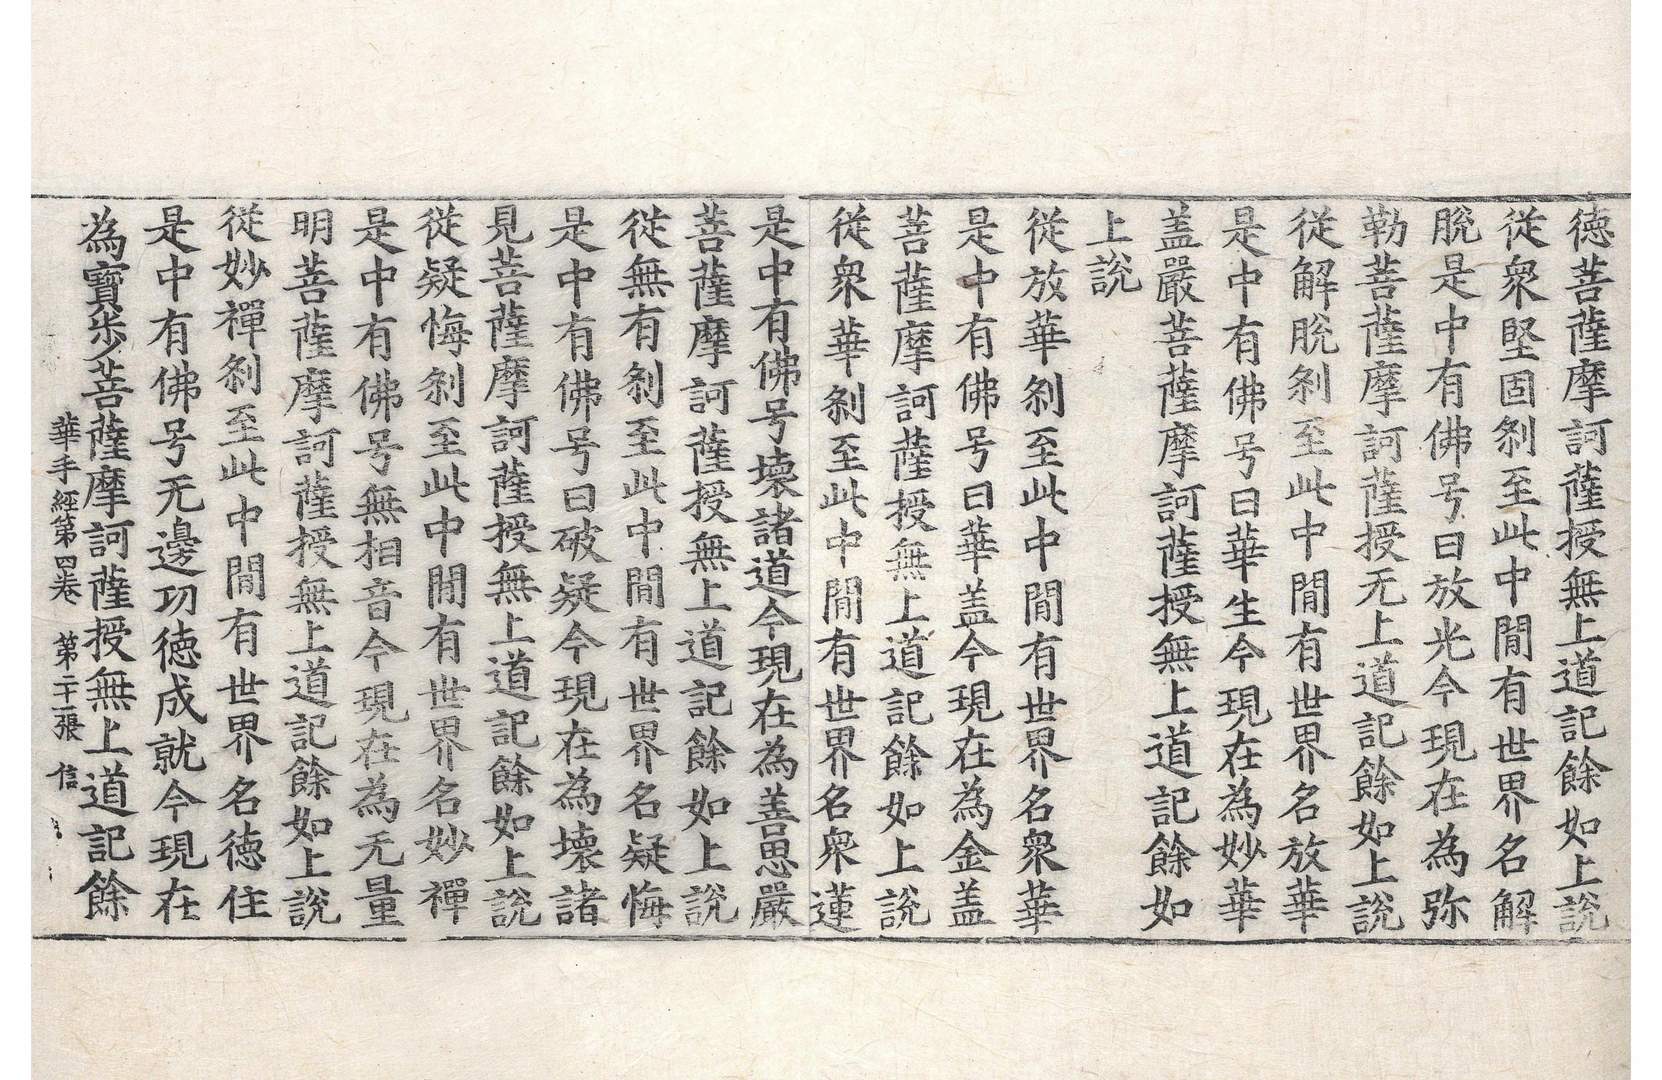 德菩薩摩訶薩授無上道記餘如上說
從衆堅固刹至此中閒有世界名解
脫是中有佛号曰放光今現在為弥
勒菩薩摩訶薩授无上道記餘如上說
從解脫刹至此中閒有世界名放華
是中有佛号曰華生今現在為妙華
盖嚴菩薩摩訶薩授無上道記餘如
上說
從放華刹至此中閒有世界名衆華
是中有佛号曰華盖今現在為金盖
菩薩摩訶薩授無上道記餘如上說
從衆華刹至此中閒有世界名衆蓮
是中有佛号壞諸道今現在為善思嚴
菩薩摩訶薩授無上道記餘如上說
從無有刹至此中閒有世界名疑悔
是中有佛号曰破疑今現在為壞諸
見菩薩摩訶薩授無上道記餘如上說
從疑悔刹至此中閒有世界名妙禪
是中有佛号無相音今現在為无量
明菩薩摩訶薩授無上道記餘如上說
從妙禪刹至此中閒有世界名德住
是中有佛号无邊功德成就今現在
為寶步菩薩摩訶薩授無上道記餘
華手經第四卷 第二十二張 信